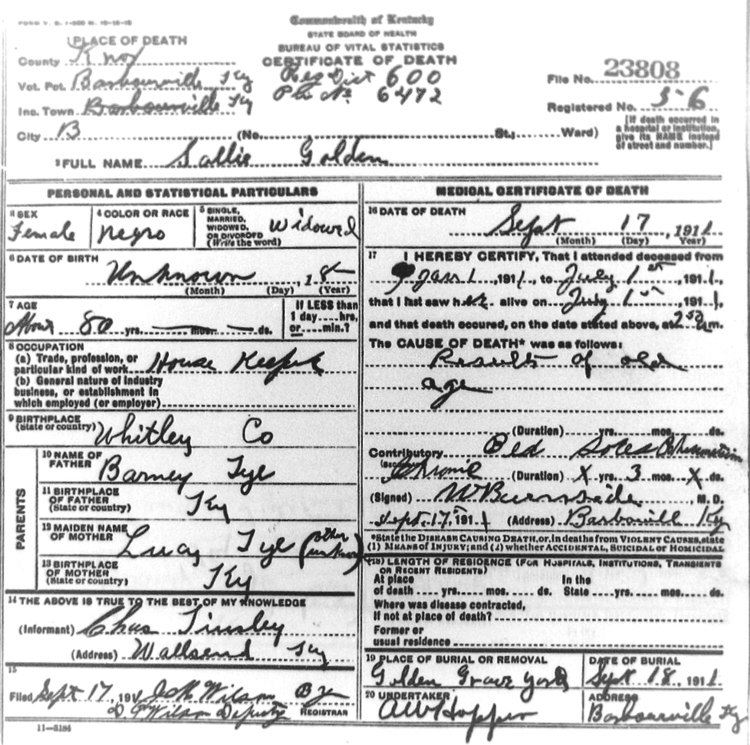 FORM V. S. 1-500 M. 10-15-15
Commonwealth of Kentucky
STATE BOARD OF HEALTH
BUREAU OF VITAL STATISTICS
CERTIFICATE OF DEATH
PLACE OF DEATH
County Knox
Vot. Pct. Barbourville Ky
Reg Dist 600
File No. 23808
Inc. Town Barbourville Ky
6472
Registered No. 56
City B (No. St.; Ward)
[If death occurred in a hospital or institution, give its NAME instead of street and number.]
2 FULL NAME Sallie Golden
PERSONAL AND STATISTICAL PARTICULARS
3 SEX Female
4 COLOR OR RACE Negro
5 SINGLE, MARRIED, WIDOWED, OR DIVORCED (Write the word) Widowed
6 DATE OF BIRTH Unknown, 18
(Month) (Day) (Year)
7 AGE
80 yrs. mos. ds.
If LESS than 1 day hrs. or min.?
8 OCCUPATION
(a) Trade, profession, or particular kind of work House Keeper
(b) General nature of industry business, or establishment in which employed (or employer)
9 BIRTHPLACE (State or country) Whitley Co
PARENTS
10 NAME OF FATHER Barney Tye
11 BIRTHPLACE OF FATHER (State or country) Ky
12 MAIDEN NAME OF MOTHER Lucy Tye (other unknown)
13 BIRTHPLACE OF MOTHER (State or country) Ky
14 THE ABOVE IS TRUE TO THE BEST OF MY KNOWLEDGE
(Informant) Chas Tinsley
(Address) Wallsend Ky
15
Filed Sept 17, 191 Wilson
Wilson Deputy REGISTRAR
11-5184
MEDICAL CERTIFICATE OF DEATH
16 DATE OF DEATH Sept 17, 1911
(Month) (Day) (Year)
17 I HEREBY CERTIFY, That I attended deceased from
Jan 1 1911, to July 1st, 1911,
that I last saw her alive on July 1st, 1911,
and that death occured, on the date stated above, at 2 50 am.
The CAUSE OF DEATH* was as follows:
Results of old
age
(Duration) yrs. mos. ds.
Contributory Bed Sores Rheumatism
Chronic (Duration) X yrs. 3 mos. X ds.
(Signed) W Burnside M. D.
Sept. 17, 1911 (Address) Barbourville Ky
*State the DISEASE CAUSING DEATH, or, in deaths from VIOLENT CAUSES, state
(1) MEANS OF INJURY; and (2) whether ACCIDENTAL, SUICIDAL OR HOMICIDAL
18 LENGTH OF RESIDENCE (FOR HOSPITALS, INSTITUTIONS, TRANSIENTS OR RECENT RESIDENTS)
At place of death yrs. mos. ds. In the State yrs. mos. ds.
Where was disease contracted,
If not at place of death?
Former or
usual residence
19 PLACE OF BURIAL OR REMOVAL
Golden Grave Yard
DATE OF BURIAL
Sept 18, 1911
20 UNDERTAKER
AW Hopper
ADDRESS
Barbourville Ky